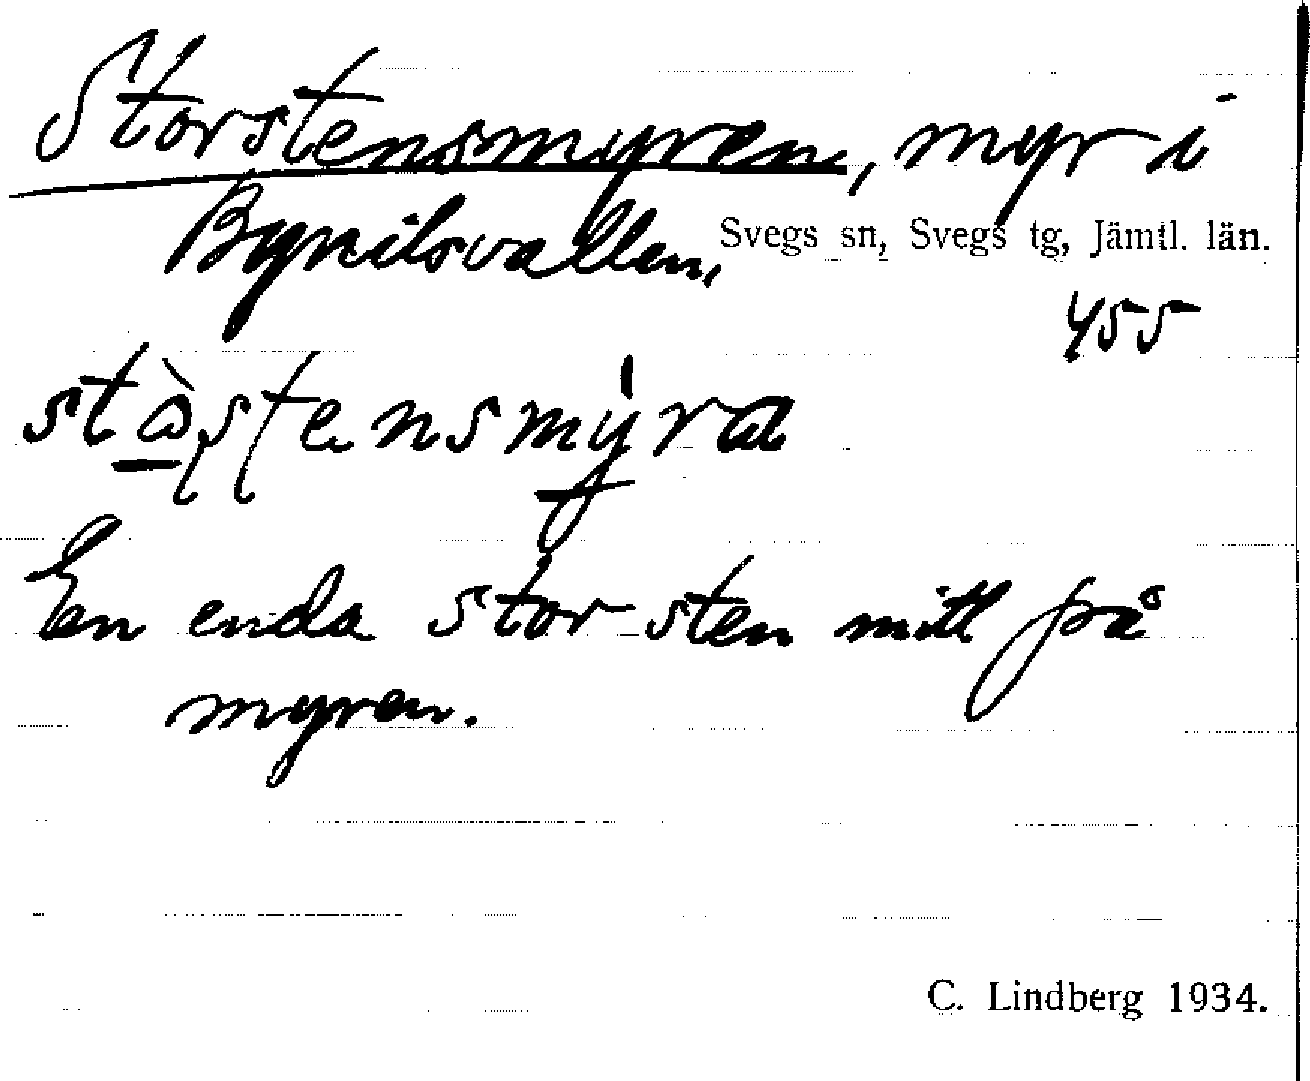 Storstensmyren, myr i
Bynilsvallen, Svegs sn, Svegs tg, Jämtl. län.
455
En enda stor sten mitt på
myren.
C. Lindberg 1934.